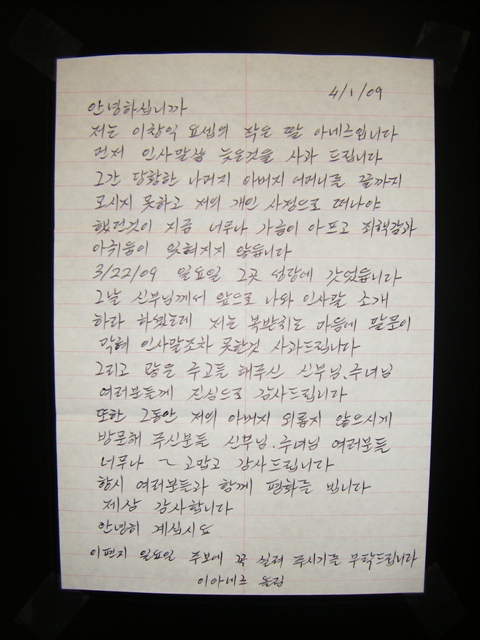 4/1/09
안녕하십니까
저는 이창익 요셉의 작은 딸 아네즈입니다
먼저 인사말씀 늦은것을 사과 드립니다
그간 당황한 나머지 아버지 어머니를 끝까지
모시지 못하고 저의 개인 사정으로 떠나야
했던것이 지금 너무나 가슴이 아프고 죄책감과
아쉬움이 잊혀지지 않읍니다
3/22/09 일요일 그곳 성당에 갓었읍니다
그날 신부님께서 앞으로 나와 인사말 소개
하라 하셨는데 저는 복받히는 마음에 말문이
막혀 인사말조차 못한것 사과드립니다
그리고 많은 수고를 해주신 신부님.수녀님
여러분들께 진심으로 감사드립니다
또한 그동안 저의 아버지 외롭지 않으시게
방문해 주신분들 신부님.수녀님 여러분들
너무나 ~ 고맙고 감사드립니다
항시 여러분들과 함께 평화를 빕니다
제삼 감사합니다
안녕히 계십시요
이편지 일요일 주보에 꼭 실려 주시기를 부탁드립니다
이아네즈 드림